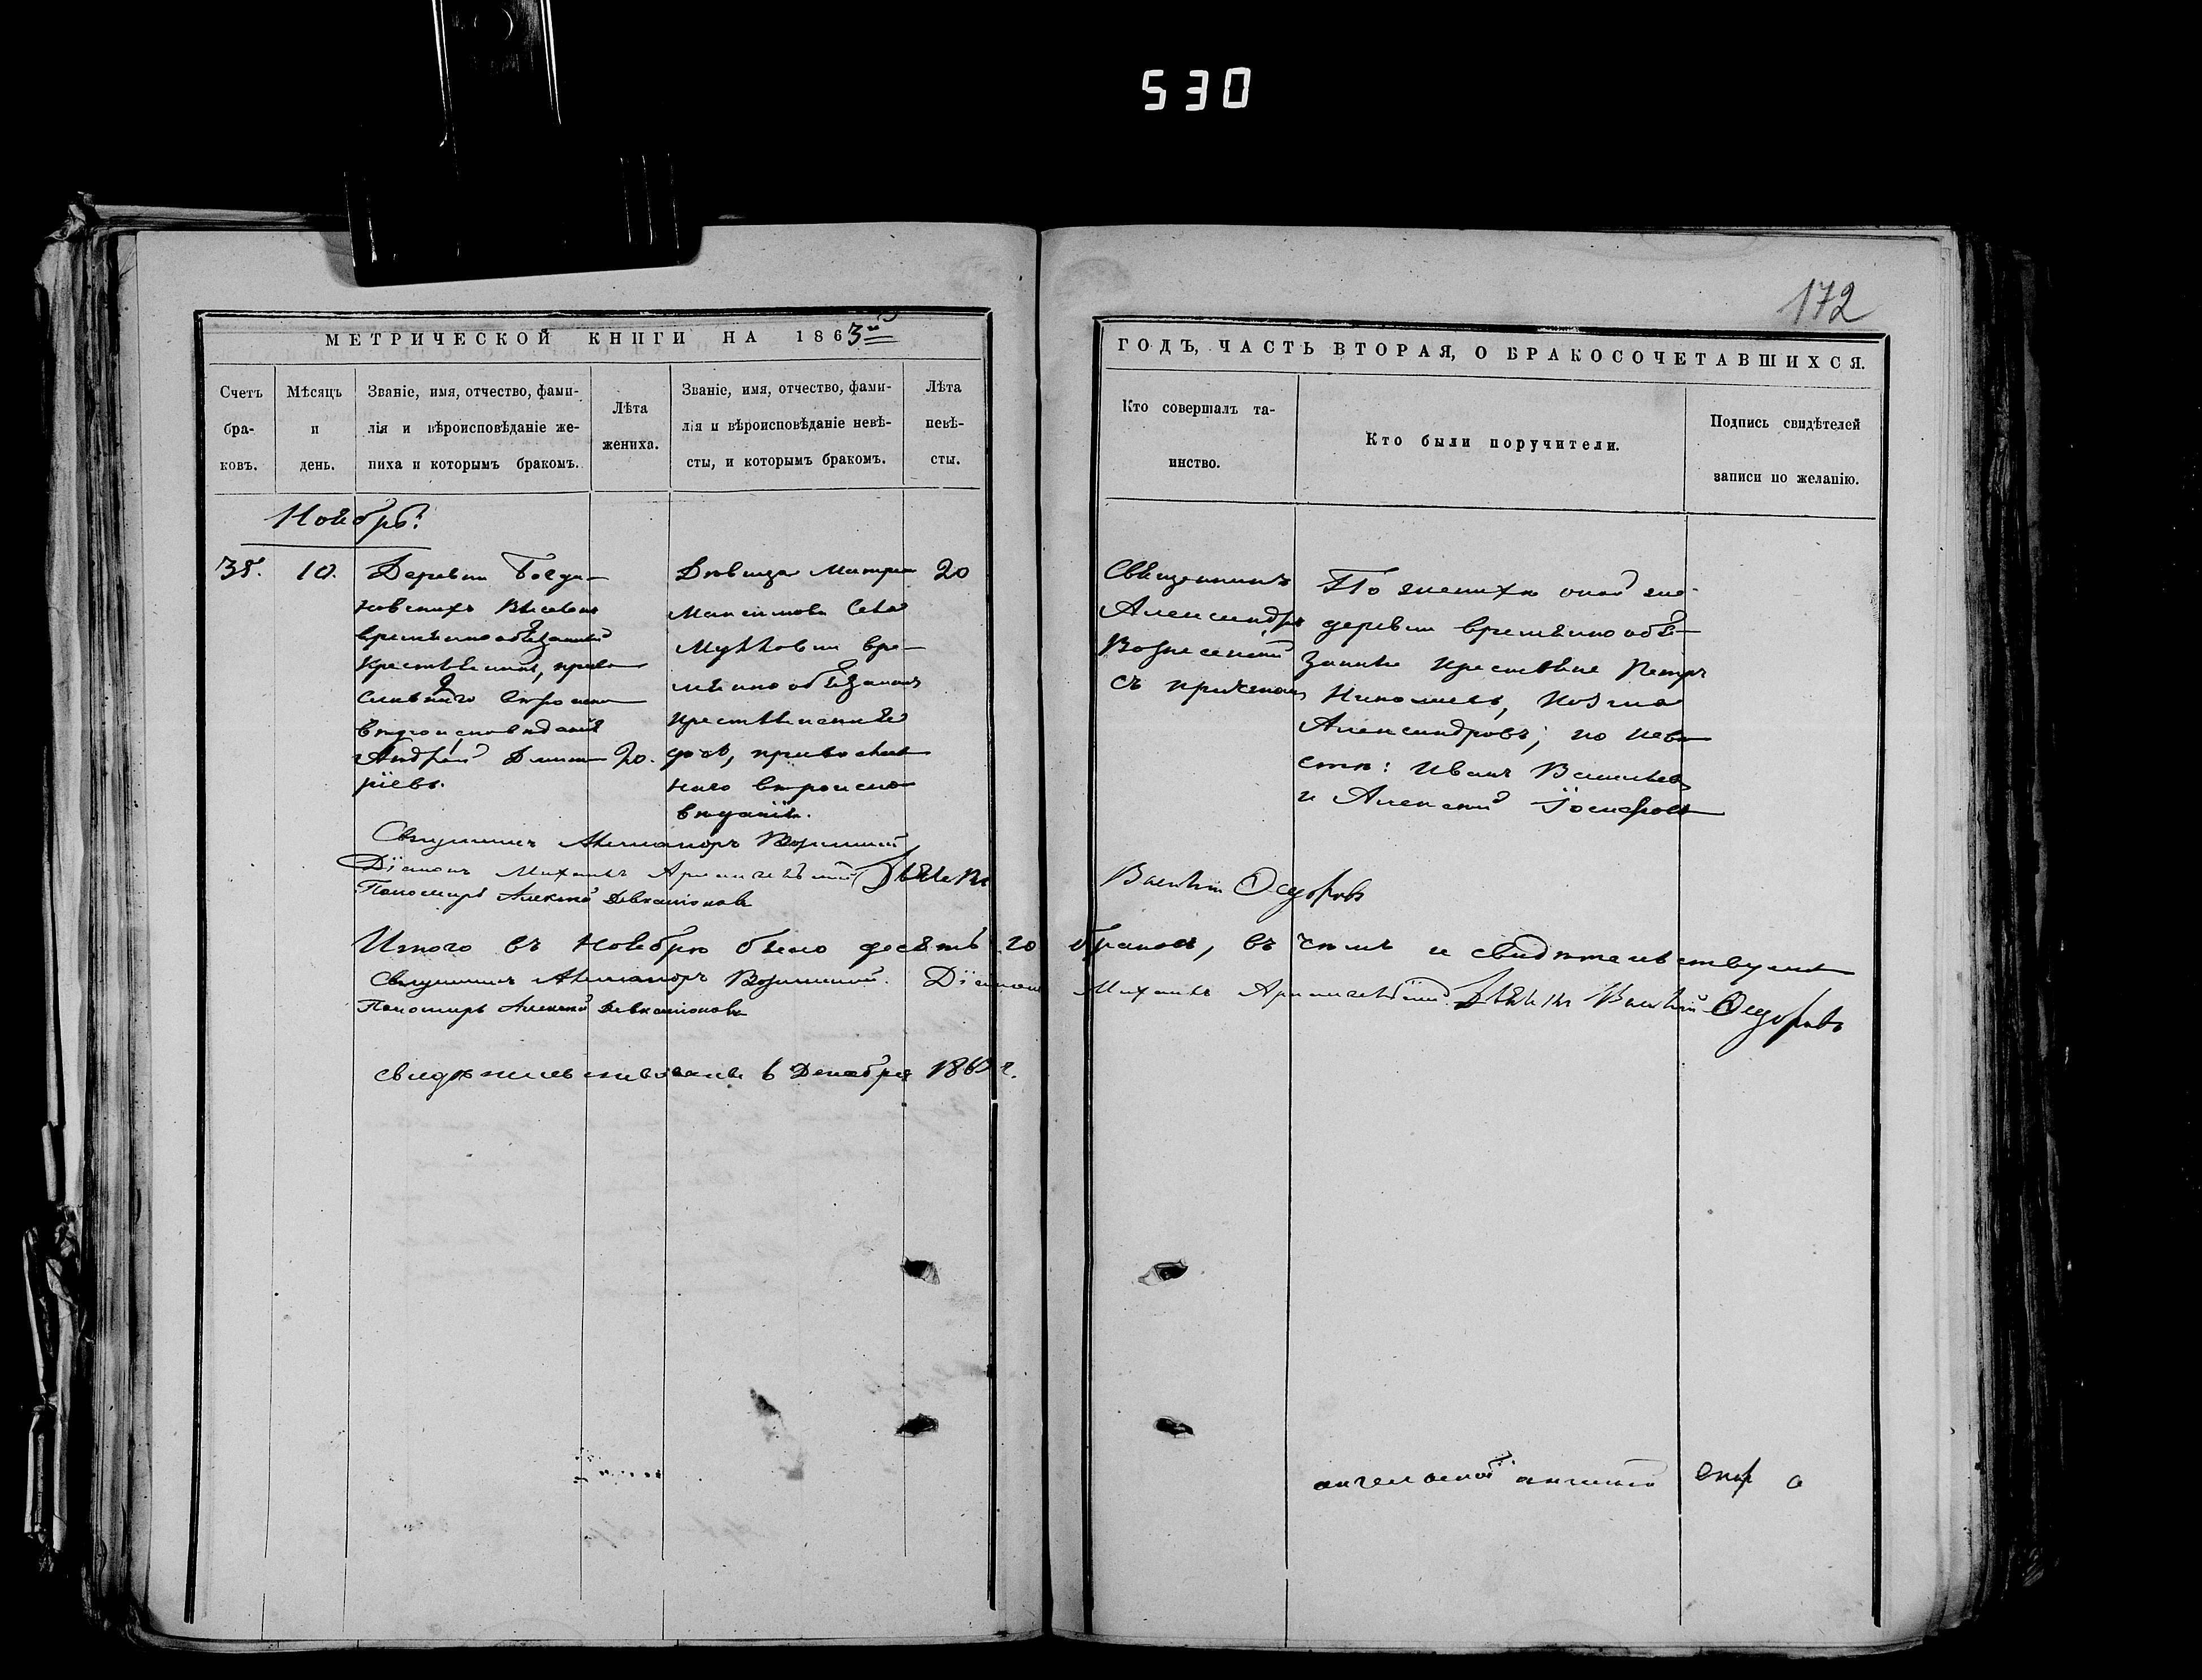 530
172
МЕТРИЧЕСКОЙ КНИГИ НА 1863й
ГОДЪ, ЧАСТЬ ВТОРАЯ, О БРАКОСОЧЕТАВШИХСЯ.
Счетъ бра-ковъ.
Мѣсяцъ и день.
Званіе, имя, отчество, фами-
лія и вѣроисповѣданіе же-
ниха и которымъ бракомъ.
Лѣта жениха.
Званіе, имя, отчество, фами-
лія и вѣроисповѣданіе невѣ-
сты, и которымъ бракомъ.
Лѣта невѣ-сты.
Кто совершалъ та-
инство.
Кто были поручители.
Подпись свидѣтелей
записи по желанію.
Ноябрь.
38.
10.
Деревни
временнообязанный
крестьянинъ, право-
славнаго
вѣроисповѣданія
Андрей Димит-
ріевъ.
20.
Дѣвица Матрона
Максимова Села
вре-
меннообязаннаго
крестьянина
дочь, православ-
наго вѣроиспо-
вѣданія.
20
Священникъ
Александръ
Вознесенскій
съ причтомъ
По женихѣ оной же
деревни временнообя-
занные крестьяне Петръ
Николаевъ, Козма
Александровъ; по невѣ-
стѣ: Иванъ Васильевъ
и Алексѣй Іосифовъ
Священникъ Александръ Вознесенскій
Діаконъ Михаилъ
Пономарь Алексѣй
Василій Ѳедоровъ
Итого въ Ноябрѣ было десять 10 браковъ, въ чемъ и свидѣтельствуемъ
Священникъ Александръ Вознесенскій. Діаконъ Михаилъ Василій Ѳедоровъ
Пономарь Алексѣй
свидѣтельствовалъ 6 Декабря 1863 г.